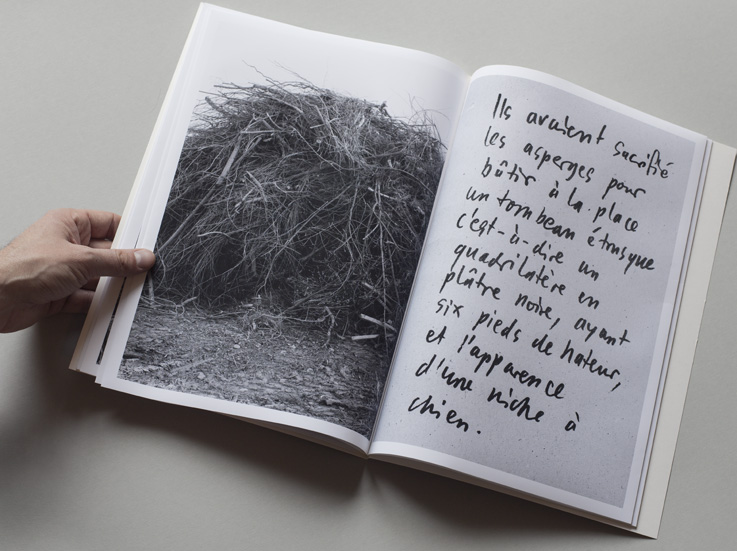 Ils avaient sacrifié
les asperges pour
bâtir à la place
un tombeau étrusque
c'est-à-dire un
quadrilatère en
plâtre noir, ayant
six pieds de hateur,
et l'apparence
d'une niche à
chien.